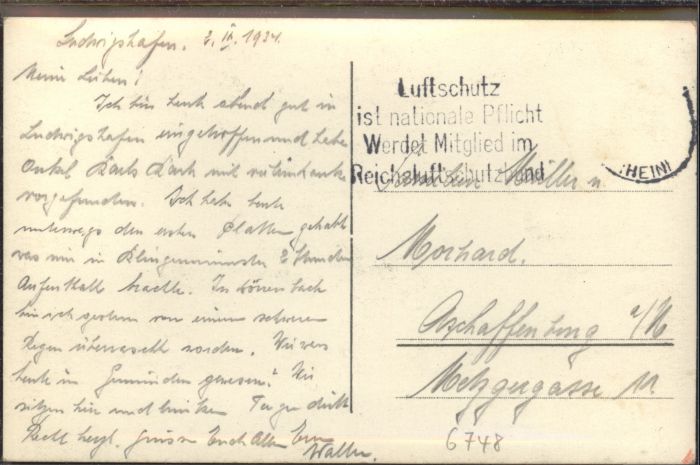 Ludwigshafen. 2. IX. 1934.
Meine Lieben!
Ich bin heute abend gut in
Ludwigshafen eingetroffen und habe
Onkel Karls Dank mit
vorgefunden. Ich habe heute
unterwegs den ersten Platten gehabt
was mir in Klingenmünster 2 Stunden
Aufenthalt machte. In
bin ich gestern von einem schweren
Regen überrascht worden. Wie wars
heute in Gemünden gewesen? Wir
sitzen hier und trinken
Recht herzl. Grüsse Euch Allen Euer
Walter.
Luftschutz
ist nationale Pflicht
Werdet Mitglied im
Reichsluftschutzbund
RHEIN
Familien Müller u.
Morhard.
Aschaffenburg a/M
Metzgergasse 11.
6748